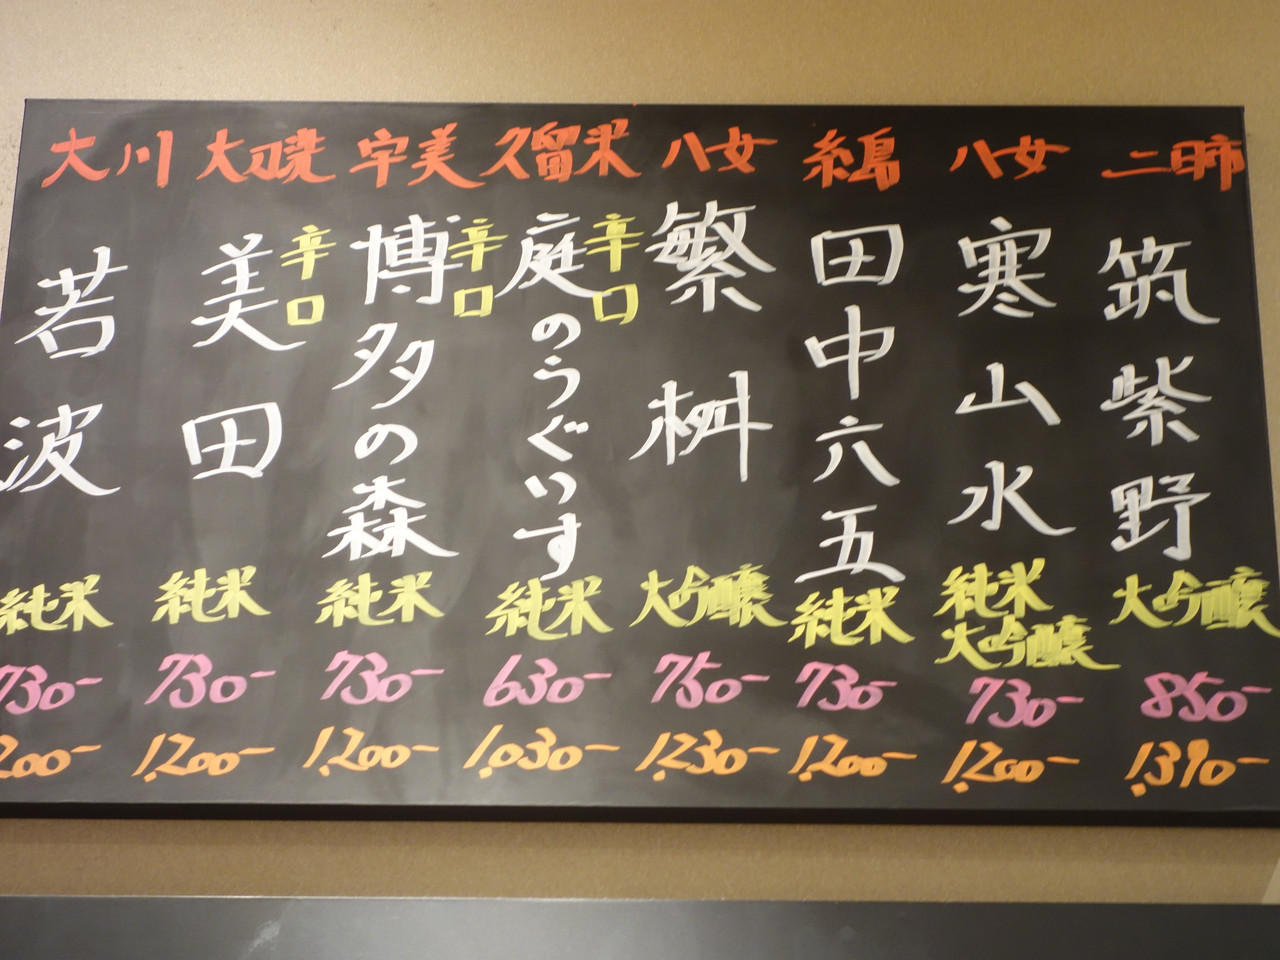 二日市
筑紫野
大吟醸
850-
1,390-
八女
寒山水
純米
大吟醸
730-
1,200-
糸島
田中六五
純米
730-
1,200-
八女
繁桝
大吟醸
750-
1,230-
久留米
辛口
庭のうぐいす
純米
630-
1,030-
宇美
辛口
博多の森
純米
730-
1,200-
大刀洗
辛口
美田
純米
730-
1,200-
大川
若波
純米
730-
200-